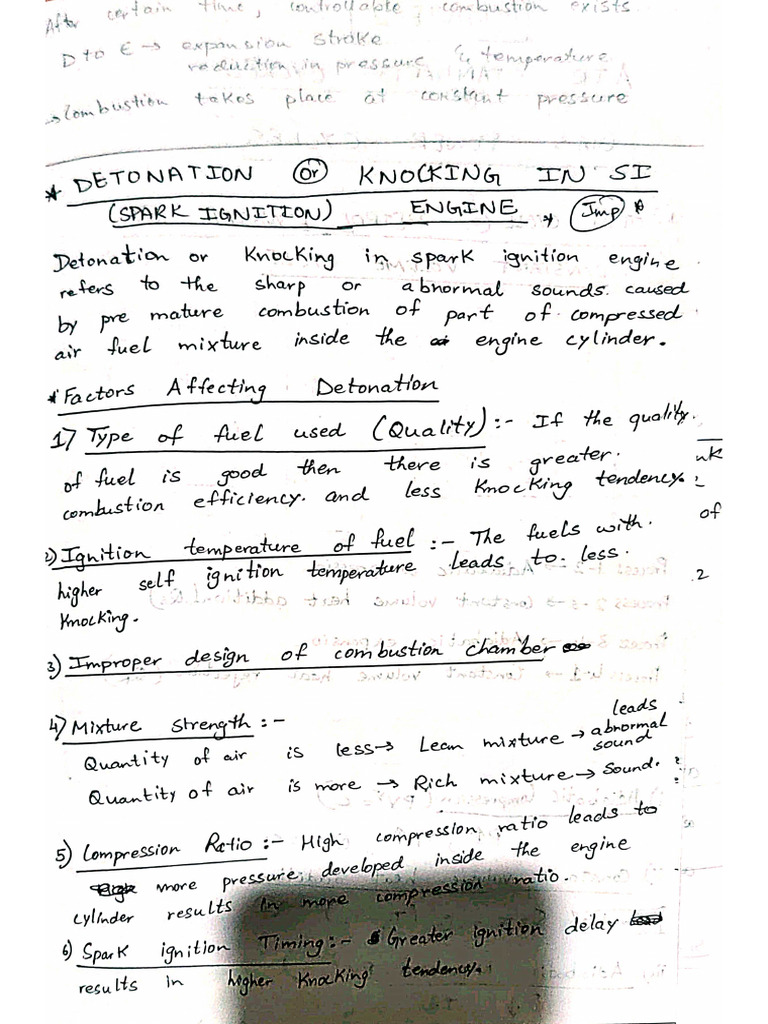 After certain time, controllable combustion exists
D to E → expansion stroke
reduction in pressure & temperature
→ Combustion takes place at constant pressure
* DETONATION (Or) KNOCKING IN SI
(SPARK IGNITION) ENGINE * (Imp) *
Detonation or Knocking in spark ignition engine
refers to the sharp or abnormal sounds caused
by pre mature combustion of part of compressed
air fuel mixture inside the engine cylinder.
* Factors Affecting Detonation
1) Type of fuel used (Quality) :- If the quality
of fuel is good then there is greater
combustion efficiency and less Knocking tendency.
2) Ignition temperature of fuel :- The fuels with
higher self ignition temperature leads to less
Knocking.
3) Improper design of combustion chamber
4) Mixture strength :-
Quantity of air is less → Lean mixture → leads abnormal sound
Quantity of air is more → Rich mixture → Sound.
5) Compression Ratio :- High compression ratio leads to
more pressure developed inside the engine
cylinder results in more compression ratio.
6) Spark ignition Timing :- Greater ignition delay
results in higher Knocking tendency.